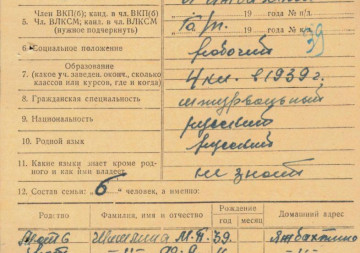 Член ВКП(б); канд. в чл. ВКП(б)
5. Член ВЛКСМ; канд. в чл. ВЛКСМ
(нужное подчеркнуть)
19 года № п/б.
19 года № п/к.
39
6. Социальное положение
рабочий
Образование
7. (какое уч. заведен. оконч., сколько
классов или курсов, где и когда)
4 кл. в 1939 г.
8. Гражданская специальность
штурвальный
9. Национальность
русский
10. Родной язык
русский
11. Какие языки знает кроме род-
ного и как ими владеет
не знает
12. Состав семьи: 6 человек, а именно:
Родство
Фамилия, имя и отчество
Рождение
год
месяц
Домашний адрес
Мать 6
М. П. 39.